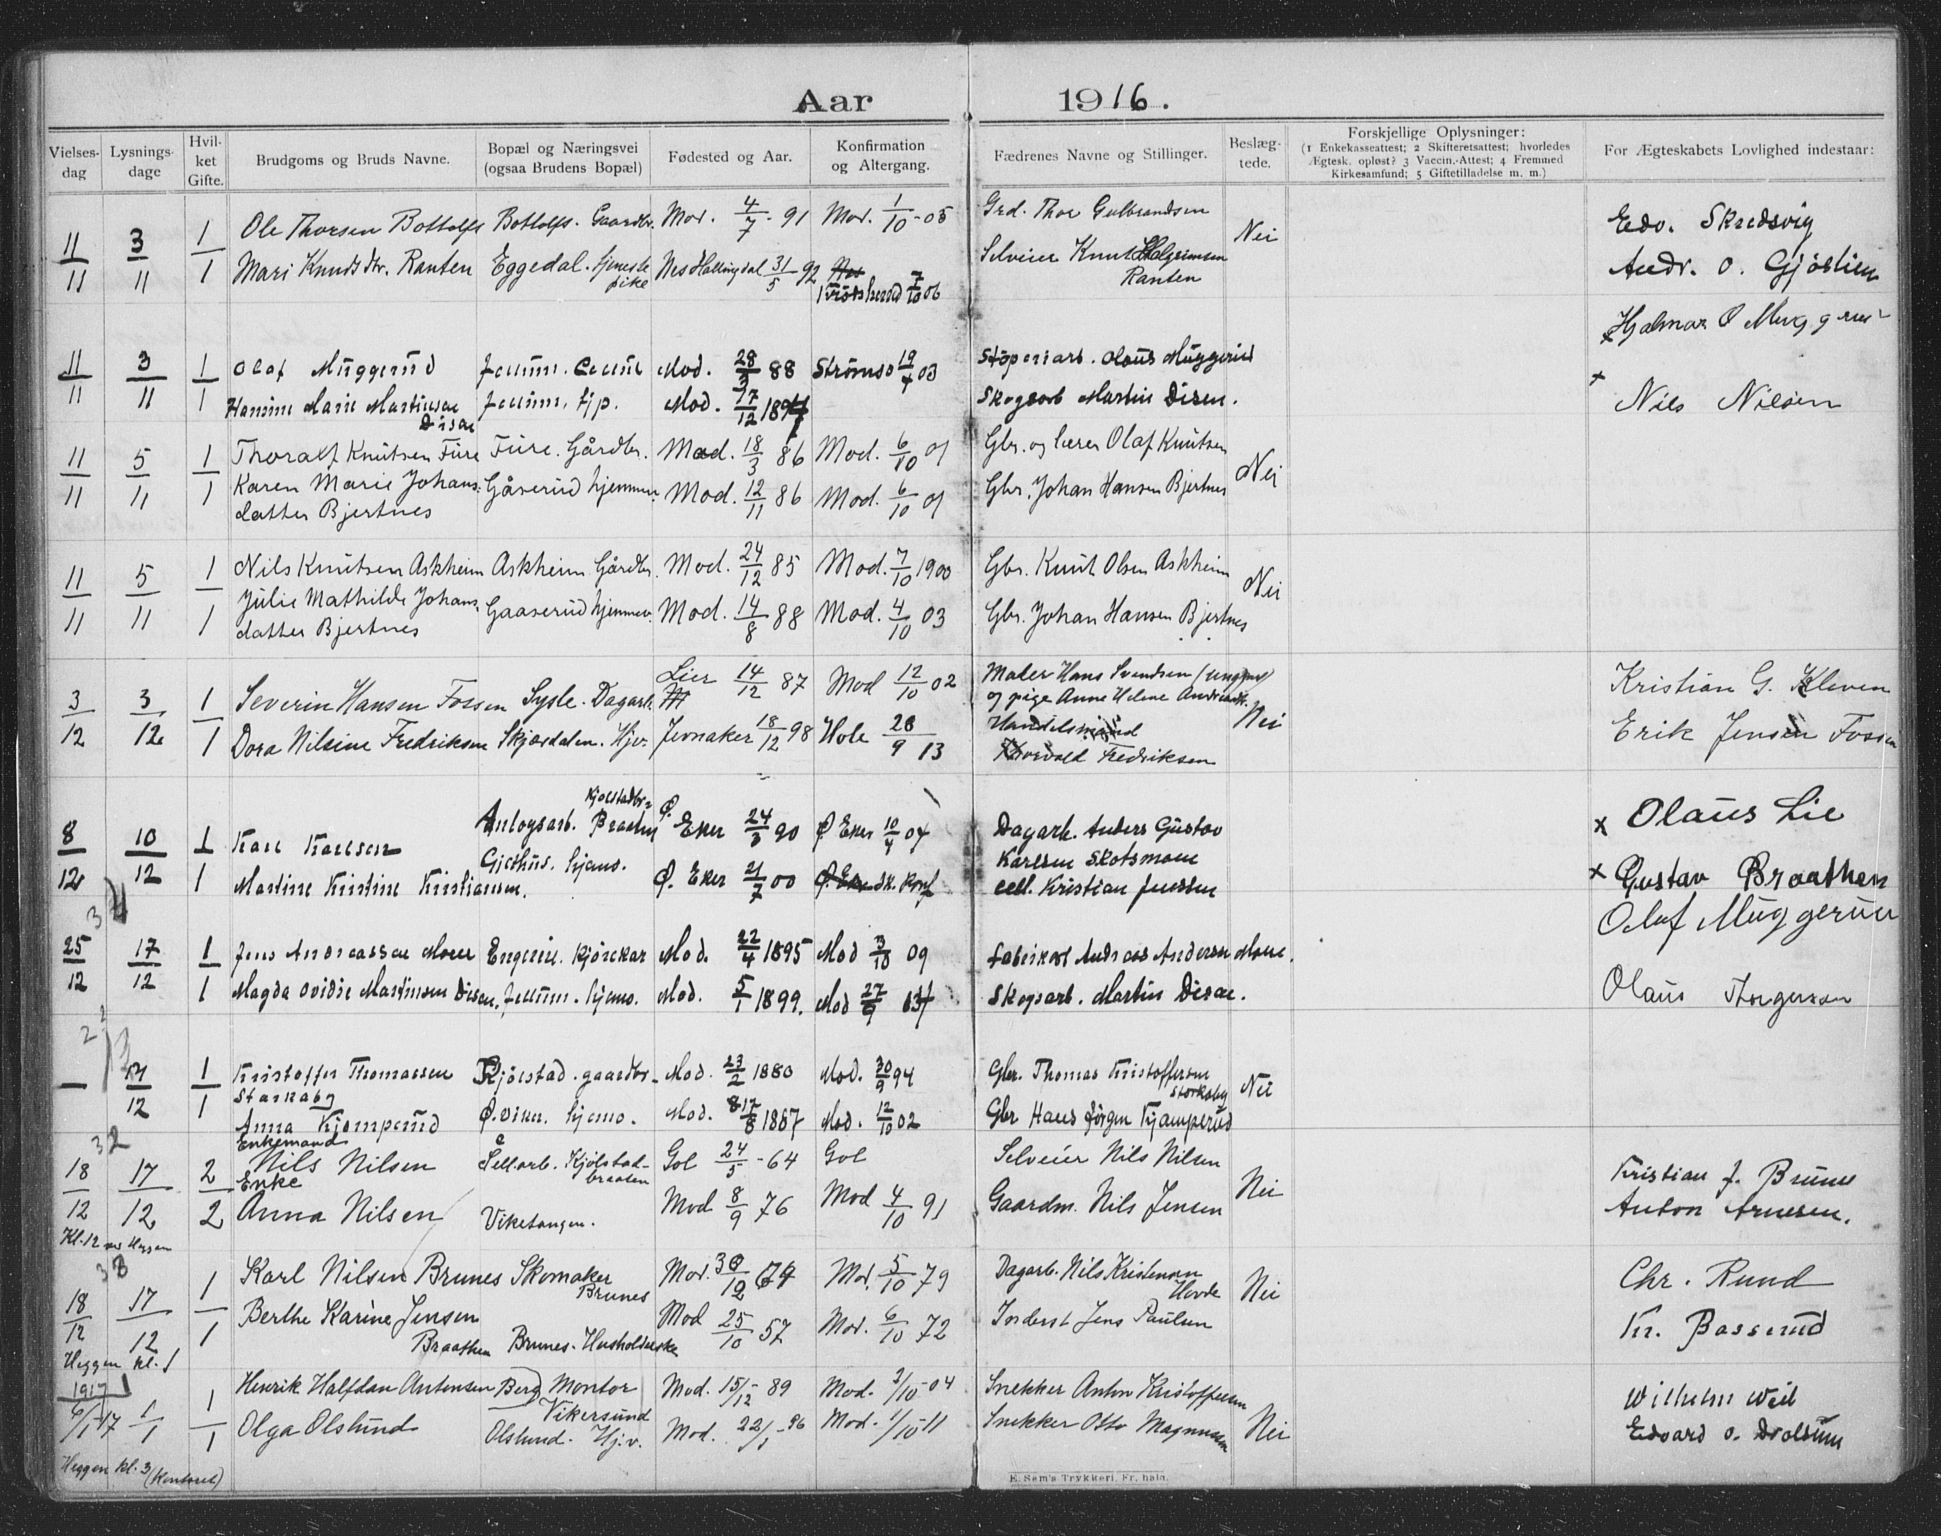 Aar 1916.
Vielses-dag Lysnings-dage Hvil-ket Gifte. Brudgoms og Bruds Navne. Bopæl og Næringsvei (ogsaa Brudens Bopæl) Fødested og Aar. Konfirmation og Altergang. Fædrenes Navne og Stillinger. Beslæg-tede. Forskjellige Oplysninger: (1 Enkekasseattest; 2 Skifteretsattest; hvorledes Ægtesk. opløst? 3 Vaccin.-Attest; 4 Fremmed Kirkesamfund; 5 Giftetilladelse m. m.) For Ægteskabets Lovlighed indestaar:
11/11 3/11 1 Ole Thorsen Bottolfs Bottolfs. Gaardbr. Mod. 4/7 - 91 Mod. 1/10 - 05 Grd. Thor Gulbrandsen Nei Edv. Skredsvig
1 Mari Knudsdtr. Ranten Eggedal. tjeneste pike Nes Hallingdal 31/5 92 Krødsherred 7/10 06 Selveier Knut Halgrimsen Ranten Andr. O. Gjöslien
Hjalmar O Muggerud
11/11 3/11 1 Olaf Muggerud Mod. 28/3 88 Strømsø 19/4 03 Støperiarb. Olaus Muggerud
1 Hansine Marie Martinsen Disen Mod. 17/12 1897 Skogsarb Martin Disen. x Nils Nilsen
11/11 5/11 1 Thoralf Knutsen Fure Fure. Gårdbr. Mod. 18/3 86 Mod. 6/10 01 Gbr. og lærer Olaf Knutsen Nei
1 Karen Marie Johans-datter Bjertnes Gåserud hjemmev. Mod. 12/11 86 Mod. 6/10 01 Gbr. Johan Hansen Bjertnes
11/11 5/11 1 Nils Knutsen Askheim Askheim Gårdbr. Mod. 24/12 85 Mod. 7/10 1900 Gbr. Knut Olsen Askheim Nei
1 Julie Mathilde Johans-datter Bjertnes Gaaserud hjemmev. Mod. 14/8 88 Mod. 4/10 03 Gbr. Johan Hansen Bjertnes
3/12 3/12 1 Severin Hansen Fossen Sysle. Dagarb. Lier 14/12 87 Mod 12/10 02 Maler Hans Svendsen (ungkar) og pige Anne Helene Andreasdt. Nei Kristian G. Kleven
1 Dora Nilsine Fredriksen Skjærdalen. Hjv. Jevnaker 18/12 98 Hole 28/9 13 Handelsmand Thorvald Fredriksen Erik Jensen Fossen
8/12 10/12 1 Karl Karlsen Anlægsarb. Kjølstadbr. Braaten Ø. Eker 24/3 90 Ø. Eker 10/4 04 Dagarb. Anders Gustav Karlsen Skotsmoen x Olaus Lie
1 Martine Kristine Kristiansen. Gjethus. hjemv. Ø. Eker 21/7 00 Ø. Eker Sk. Konf Cell. Kristian Jenssen x Gustav Braathen
34
25/12 17/12 1 Jens Andreassen Moen Engerin. Kjørekar Mod. 22/4 1895 Mod 3/10 09 Fabrikarb Andreas Andersen Moen. Olaf Muggerud
1 Magda Ovidie Martinsen Disen. hjemv. Mod. 5/1 1899. Mod 27/9 Skogsarb. Martin Disen. Olaus Thorgersen
— 17/12 1 Kristoffer Thomassen Storkaby Kjölstad. gaardbr. Mod. 23/2 1880 Mod. 30/9 94 Gbr. Thomas Kristoffersen Storkaby Nei
1 Anna Kjemperud Ø. Viker. hjemv. Mod. 17/8 1887 Mod. 12/10 02 Gbr Hans Jørgen Kjæmperud
32
18/12 17/12 2 Enkemand Nils Nilsen Cell.arb. Kjölstad-braaten Gol 24/5 - 64 Gol Selveier Nils Nilsen Nei Kristian J. Brunes
2 Enke Anna Nilsen Viketangen. Mod 8/9 76 Mod 4/10 91 Gaardm. Nils Jensen Anton Arnesen.
Kl. 12 Heggen
38
18/12 17/12 1 Karl Nilsen Brunes Skomaker Brunes Mod. 30/12 64 Mod. 5/10 79 Dagarb. Nils Kristensen Hovde Nei Chr. Rund
1 Berthe Karine Jensen Braathen Brunes. Husholderske Mod 25/10 57 Mod. 6/10 72 Inderst Jens Paulsen Kr. Basserud
Heggen kl. 1
1917
6/1-17 1/1 1 Henrik Halfdan Antonsen Berg Montør Vikersund Mod. 15/12 - 89 Mod. 2/10 - 04 Snekker Anton Kristoffersen Wilhelm Weil
1 Olga Olslund Olslund. Hj.v. Mod. 22/1 - 96 Mod. 1/10 - 11 Snekker Otto Magnussen Nei Edvard O. Drolsum
Heggen kl. 3 (Kontoret)
E. Sem's Trykkeri, Fr. hald.